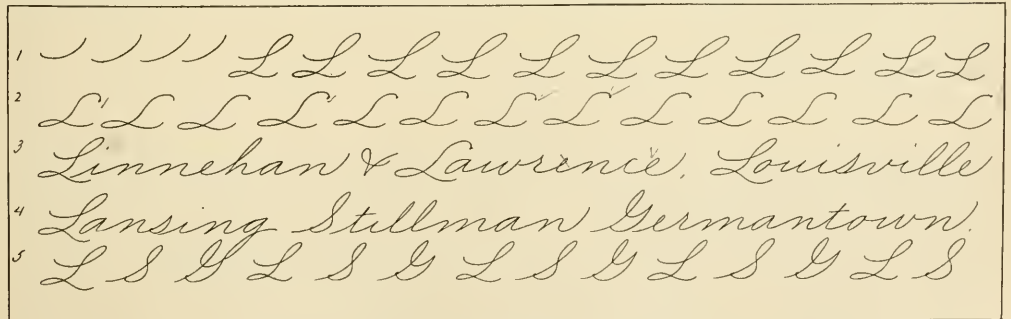 1 L L L L L L L L L L L
2 L L L L L L L L L L L L L
3 Linnehan & Lawrence. Louisville
4 Lansing Stillman Germantown.
5 L S G L S G L S G L S G L S